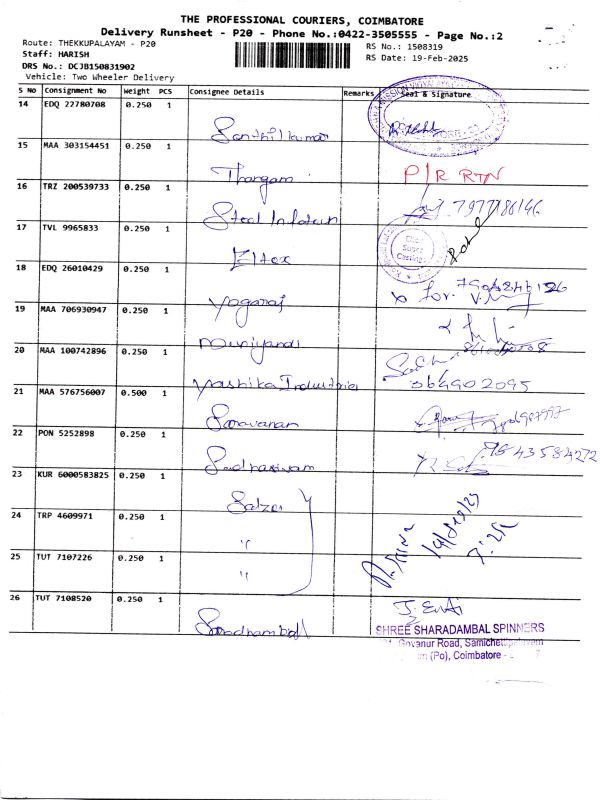 THE PROFESSIONAL COURIERS, COIMBATORE
Delivery Runsheet - P20 - Phone No.:0422-3505555 - Page No.:2
Route: THEKKUPALAYAM - P20
Staff: HARISH
DRS No.: DCJB150831902
Vehicle: Two Wheeler Delivery
RS No.: 1508319
RS Date: 19-Feb-2025
S No Consignment No Weight PCS Consignee Details Remarks Seal & Signature
14 EDQ 22780708 0.250 1
Senthilkumar
15 MAA 303154451 0.250 1
Thangam P/R RTN
16 TRZ 200539733 0.250 1
Steel
17 TVL 9965833 0.250 1
Eltex
18 EDQ 26010429 0.250 1
Yogaraj for
19 MAA 706930947 0.250 1
Muniyandi
20 MAA 100742896 0.250 1
Yashika Industries
21 MAA 576756007 0.500 1
Saravanan
22 PON 5252898 0.250 1
Sadhasivam 9543584272
23 KUR 6000583825 0.250 1
Salzer
24 TRP 4609971 0.250 1
"
25 TUT 7107226 0.250 1
"
26 TUT 7108520 0.250 1
Saradhambal
SHREE SHARADAMBAL SPINNERS
Govanur Road,
(Po), Coimbatore -